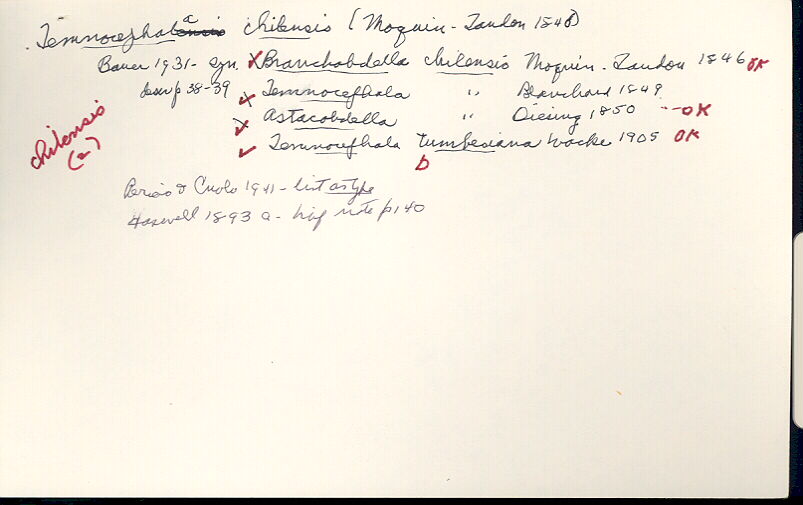 Temnocephala chilensis (Moquin-Tandon 1846)
Baer 1931 - syn. x Branchobdella chilensis Moquin-Tandon 1846 OK
descr p 38-39 ✓ Temnocephala " Blanchard 1849
✓ Astacobdella " Diesing 1850 --OK
✓ Temnocephala tumbesiana Wacke 1905 OK
b
chilensis
(a)
1941 - list as type
Haswell 1893 a - brief note p 140